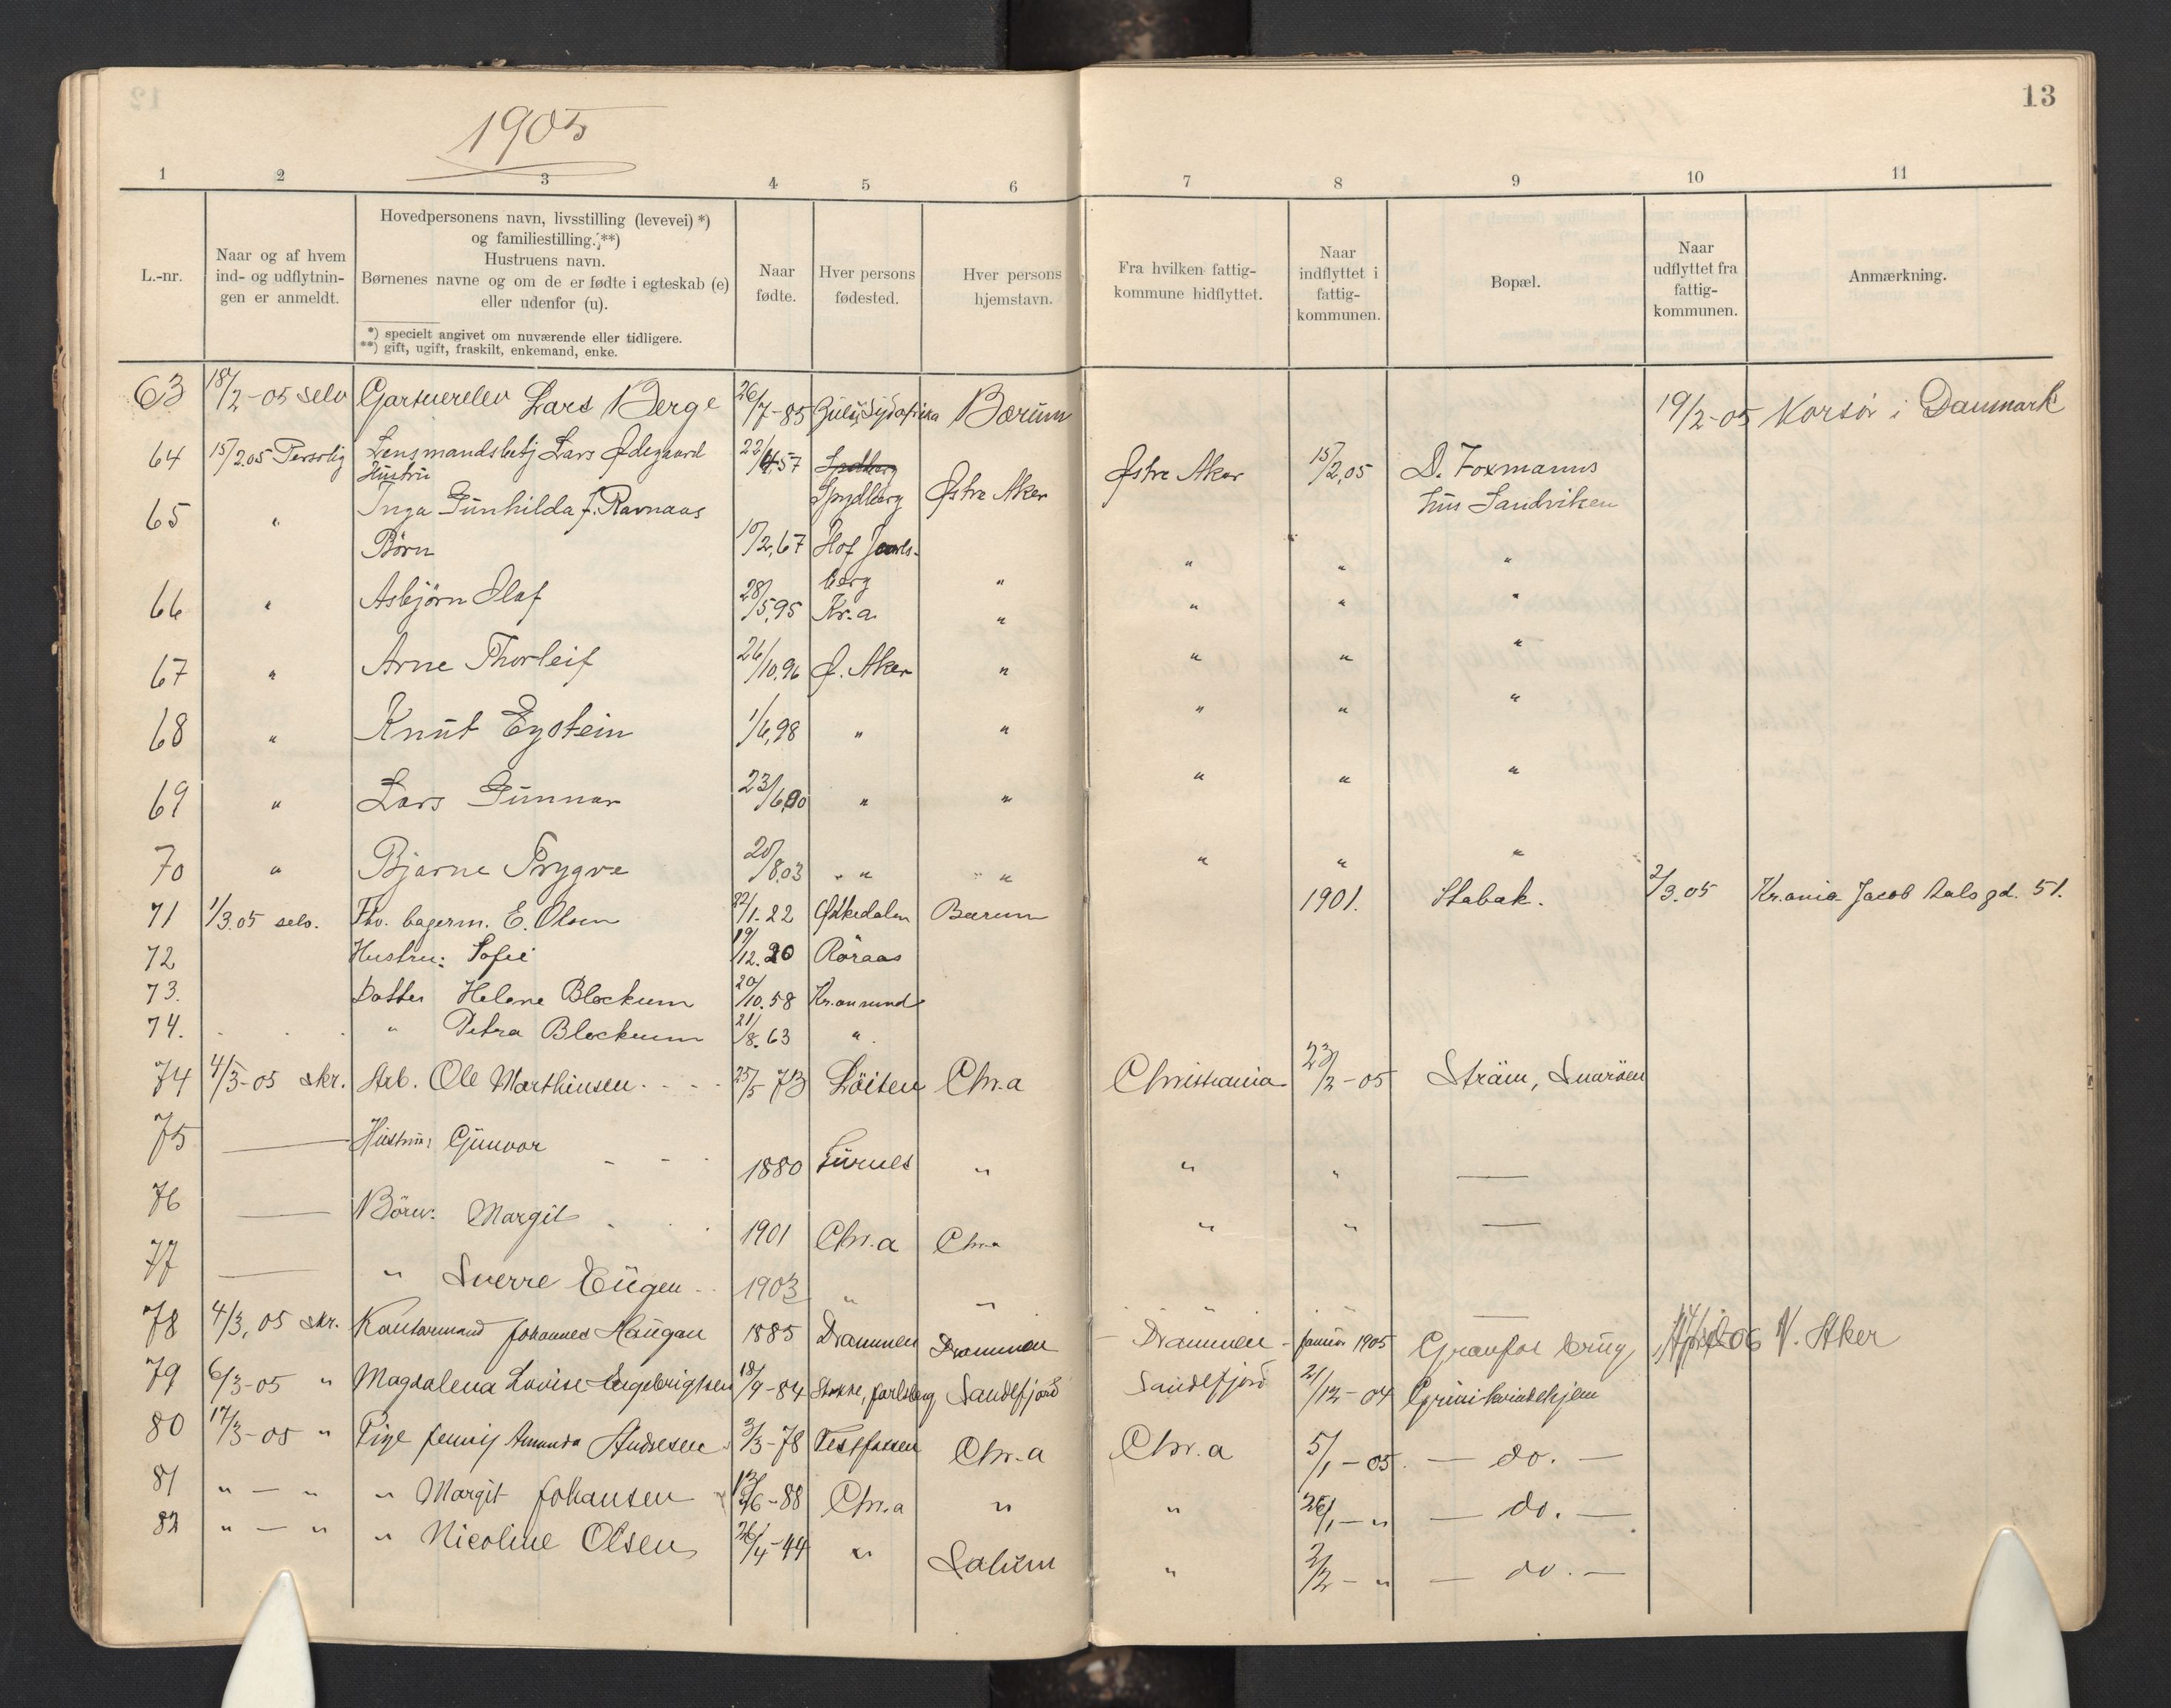 1905
13
1 2 3 4 5 6 7 8 9 10 11
L.-nr.
Naar og af hvem
ind- og udflytnin-
gen er anmeldt.
Hovedpersonens navn, livsstilling (levevei) *)
og familiestilling. **)
Hustruens navn.
Børnenes navne og om de er fødte i egteskab (e)
eller udenfor (u).
*) specielt angivet om nuværende eller tidligere.
**) gift, ugift, fraskilt, enkemand, enke.
Naar
fødte.
Hver persons
fødested.
Hver persons
hjemstavn.
Fra hvilken fattig-
kommune hidflyttet.
Naar
indflyttet i
fattig-
kommunen.
Bopæl.
Naar
udflyttet fra
fattig-
kommunen.
Anmærkning.
63 18/2-05 selv Gartnerelev Lars Berge 26/7-85 Sydafrika Bærum 19/2-05 Korsör i Danmark
64 15/2.05 Personlig Lensmandsbetj Lars Ødegaard 57 Spydberg Østre Aker Østre Aker 15/2.05 D. Foxmanns
Hustru
hus Sandviken
65 " Inga Gunhilda f. Ravnaas 10/2.67 Hof Jarls-
berg " " " "
Børn
66 " Asbjørn Olaf 28/5.95 Kr.a. " " " "
67 " Arne Thorleif 26/10.96 Ø. Aker " " " "
68 " Knut Eystein 1/6.98 " " " " "
69 " Lars Gunnar 23/6.00 " " " " "
70 " Bjarne Trygve 20/8.03 " " " " " "
71 1/3.05 selv. Fhv. bagerm. E. Olsen 22/1.22 Østkedalen Bærum 1901. Stabæk. 2/3.05 Kr.ania Jacob Aals gd. 51.
72 Hustru: Sofie 19/12.20 Röraas
73. Datter Helene Bleckum 20/10.58 Kr.ansund
74. " Petra Bleckum 21/8.63 "
74 4/3-05 skr. Arb. Ole Marthinsen 25/5 73 Löiten Chr.a Christiania 23/2-05 Ström, Snaröen
75 — Hustru: Gunvor 1880 " " " —
76 — Börn: Margit 1901 Chr.a Chr.a " " —
77 — " Sverre Eugen 1903 " " —
78 4/3.05 skr. Kontormand Johannes Haugan 1885 Drammen Drammen Drammen januar 1905 Granfos brug 06 V. Aker
79 6/3-05 " Magdalena Lovise Engebrigtsen 18/9-84 Stokke, Jarlsberg Sandefjord Sandefjord 21/12-04 Grini kvindehjem
80 17/3-05 " Pige Jenny Amunda Andresen 3/3-78 Vestfossen Chr.a Chr.a 5/1-05 — do. —
81 " — " " Margit Johansen 6-88 Chr.a " " 26/1-" — do. —
82 " — " " Nicoline Olsen 26/4-44 " " 2/2-" — do. —